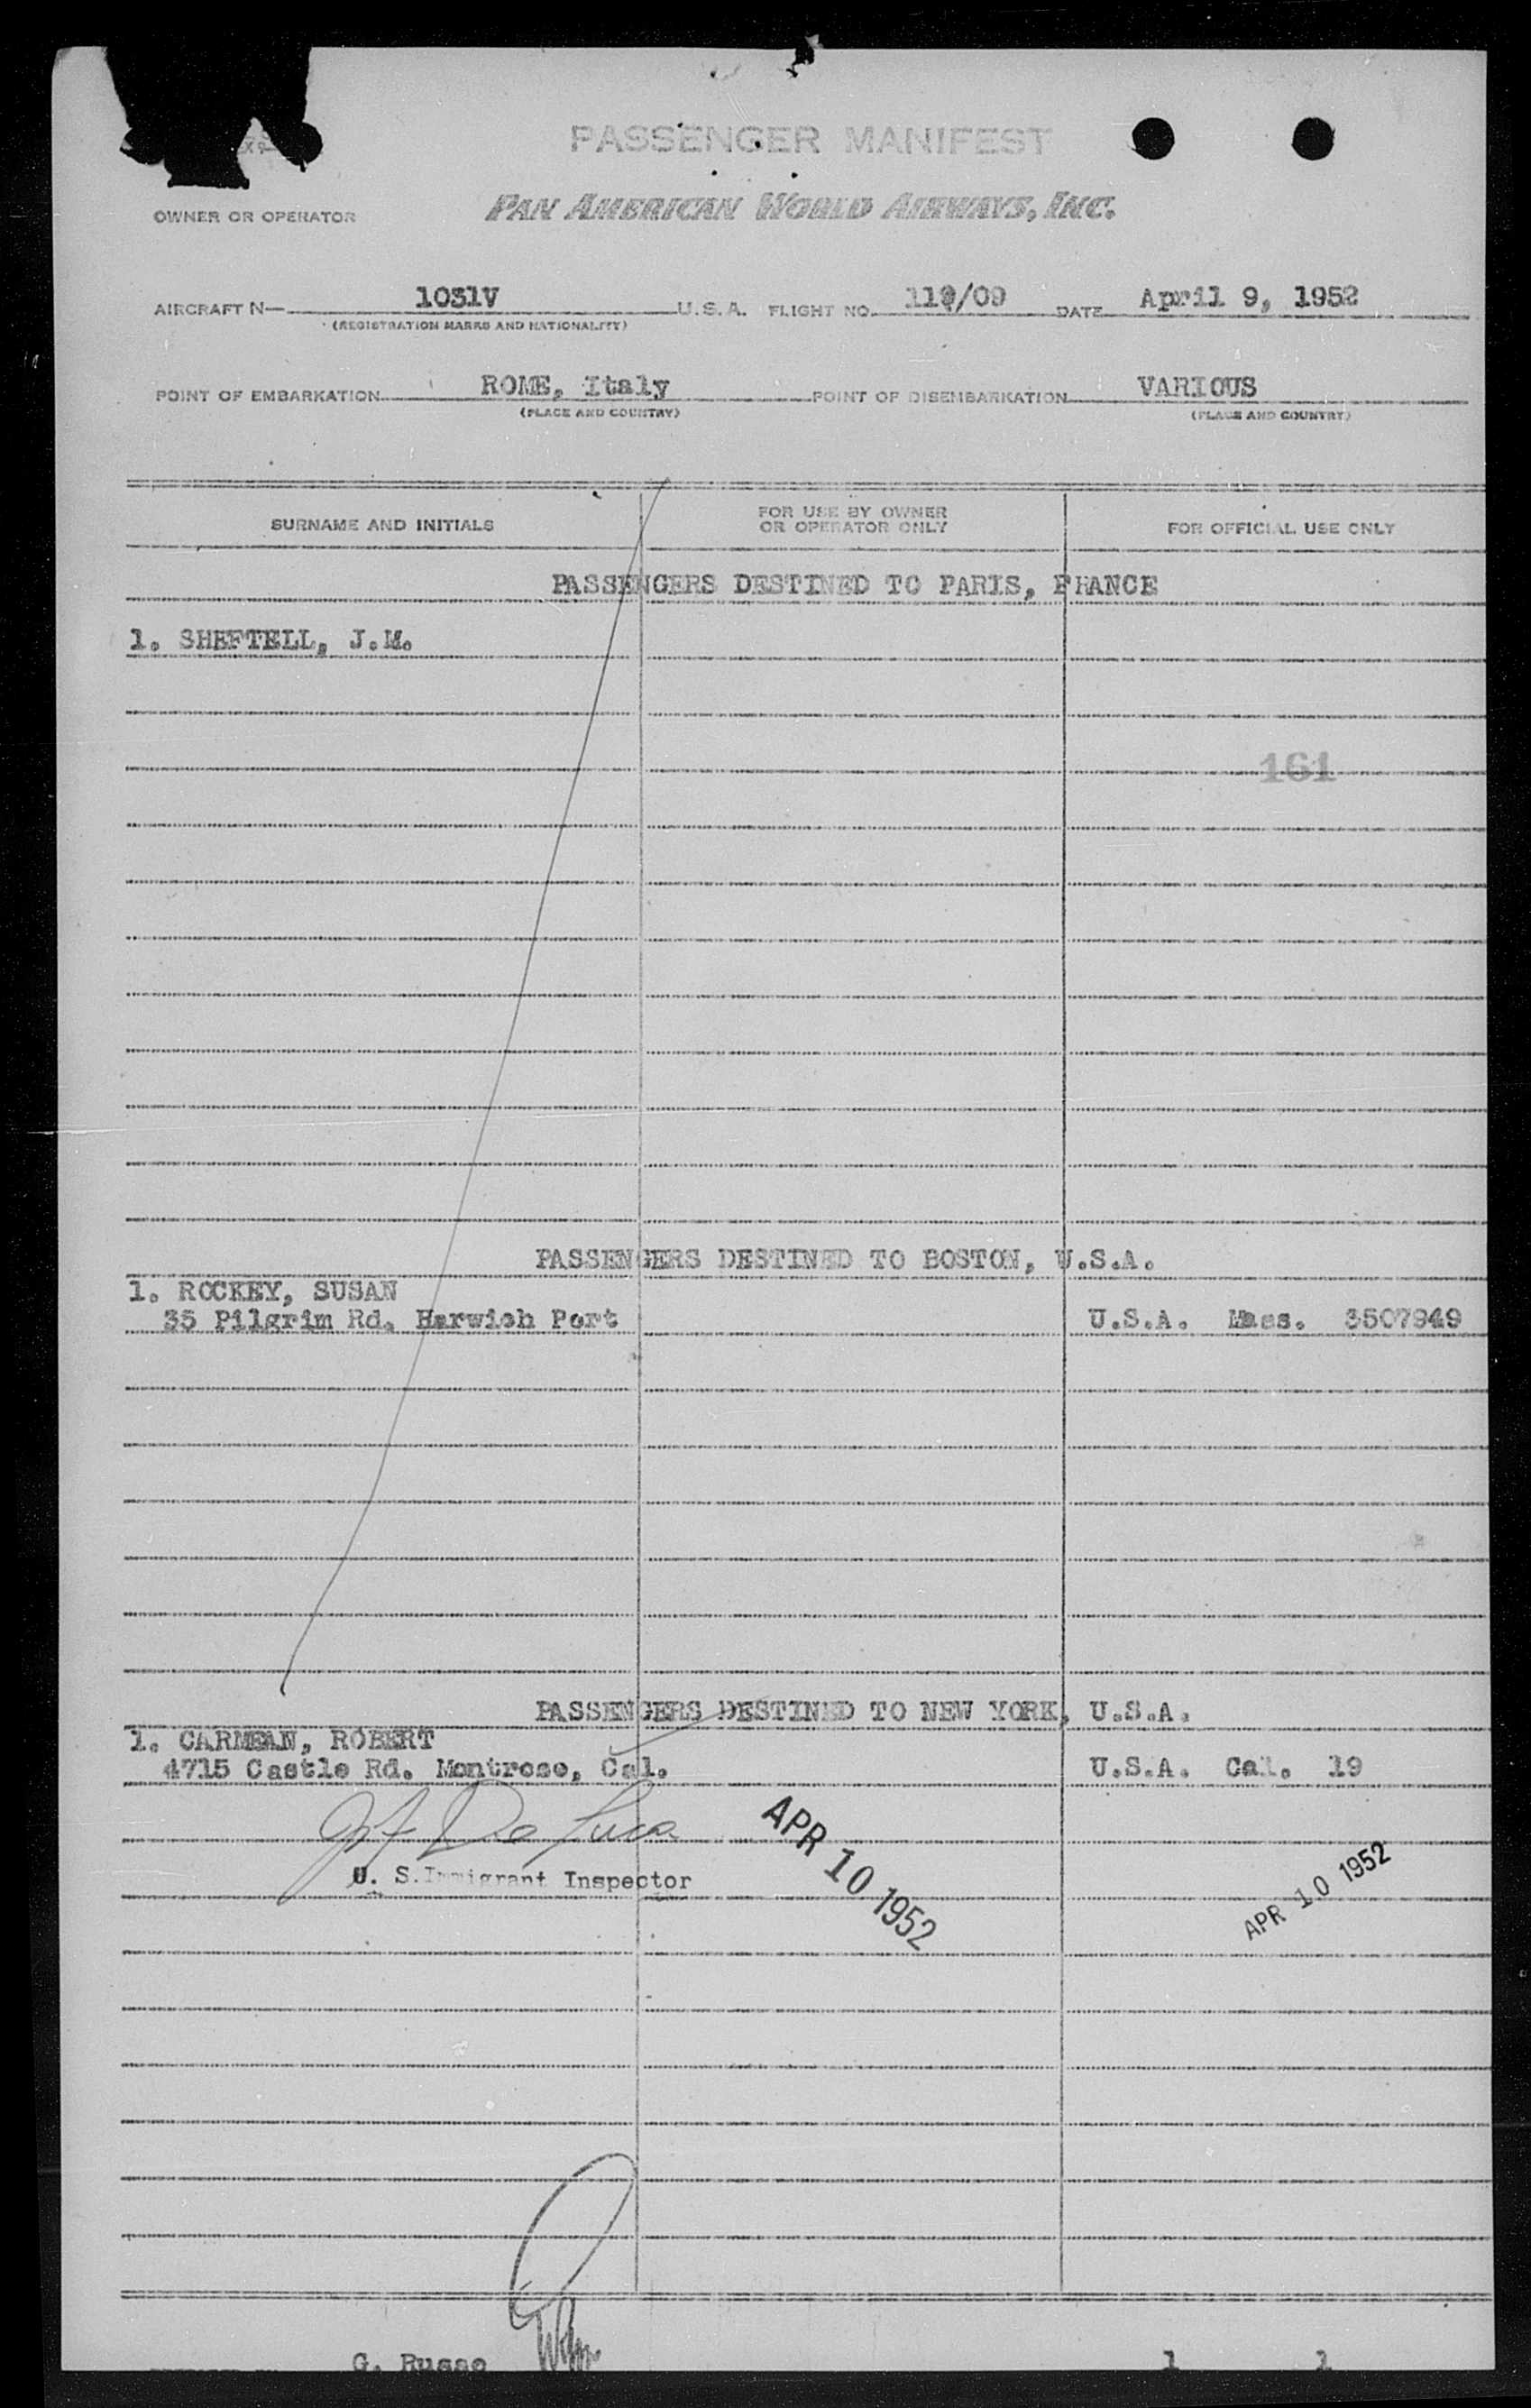 PASSENGER MANIFEST
OWNER OR OPERATOR PAN AMERICAN WORLD AIRWAYS, INC.
AIRCRAFT N— 1031V U.S.A. FLIGHT NO. /09 DATE April 9, 1952
(REGISTRATION MARKS AND NATIONALITY)
POINT OF EMBARKATION ROME, Italy POINT OF DISEMBARKATION VARIOUS
(PLACE AND COUNTRY) (PLACE AND COUNTRY)
SURNAME AND INITIALS FOR USE BY OWNER OR OPERATOR ONLY FOR OFFICIAL USE ONLY
PASSENGERS DESTINED TO PARIS, FRANCE
1. SHEFTELL, J.M.
161
PASSENGERS DESTINED TO BOSTON, U.S.A.
1. ROCKEY, SUSAN
35 Pilgrim Rd. Harwich Port U.S.A. Mass. 3507949
PASSENGERS DESTINED TO NEW YORK, U.S.A.
1. CARMEAN, ROBERT
4715 Castle Rd. Montrose, Cal. U.S.A. Cal. 19
De Luca
U. S. Immigrant Inspector
APR 10 1952
APR 10 1952
G. Russo 1 1